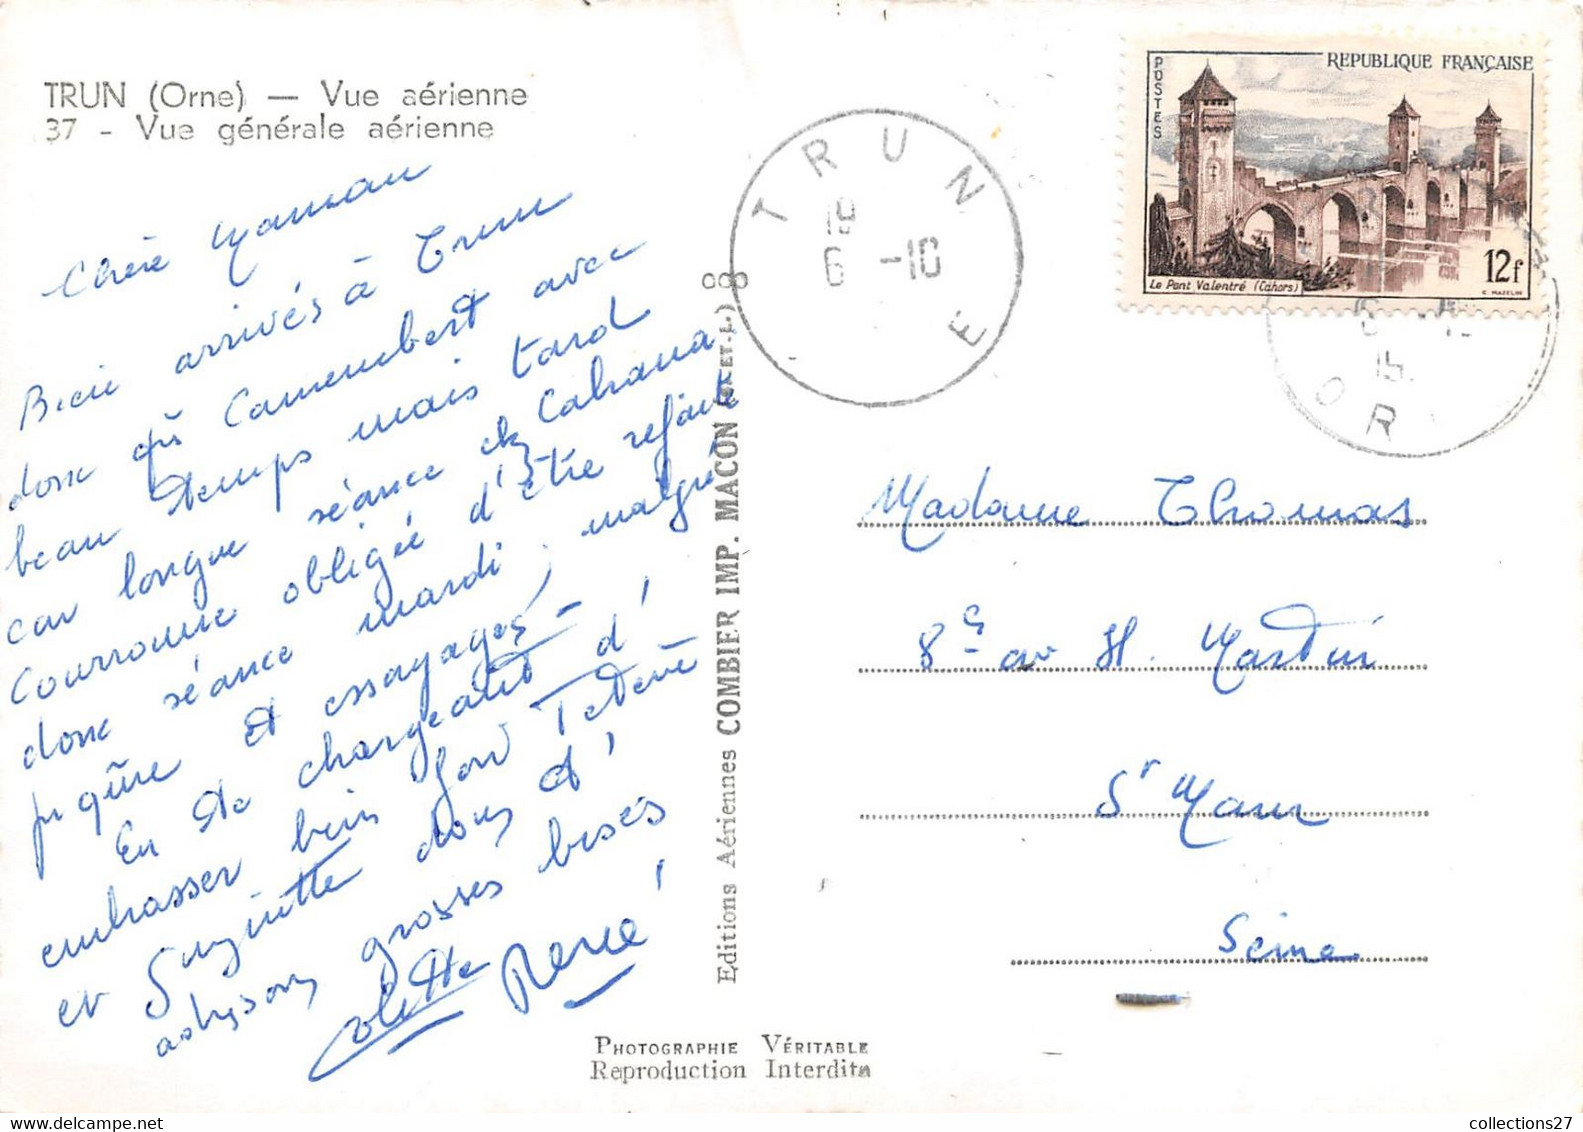 TRUN (Orne) — Vue aérienne
37 - Vue générale aérienne
Chère Maman
Bien arrivés à Trun
donc qu Camembert avec
beau temps mais tard
car longue séance chz Cabana,
Couronne obligée d'être refaite
donc séance mardi, malgré
piqûre et essayages -
En te chargeant d'
embrasser bien fort Tetene
et Suzinette dons d'
grosses bises
Colette René
Editions Aériennes COMBIER IMP. MACON (S.-ET-L.)
TRUN
19
6 -10
E
POSTES
REPUBLIQUE FRANÇAISE
Le Pont Valentré (Cahors)
12f
C. MAZELIN
15
OR
Madame Thomas
8 av H. Martin
St Maur
Seine
PHOTOGRAPHIE VÉRITABLE
Reproduction Interdite
collections27